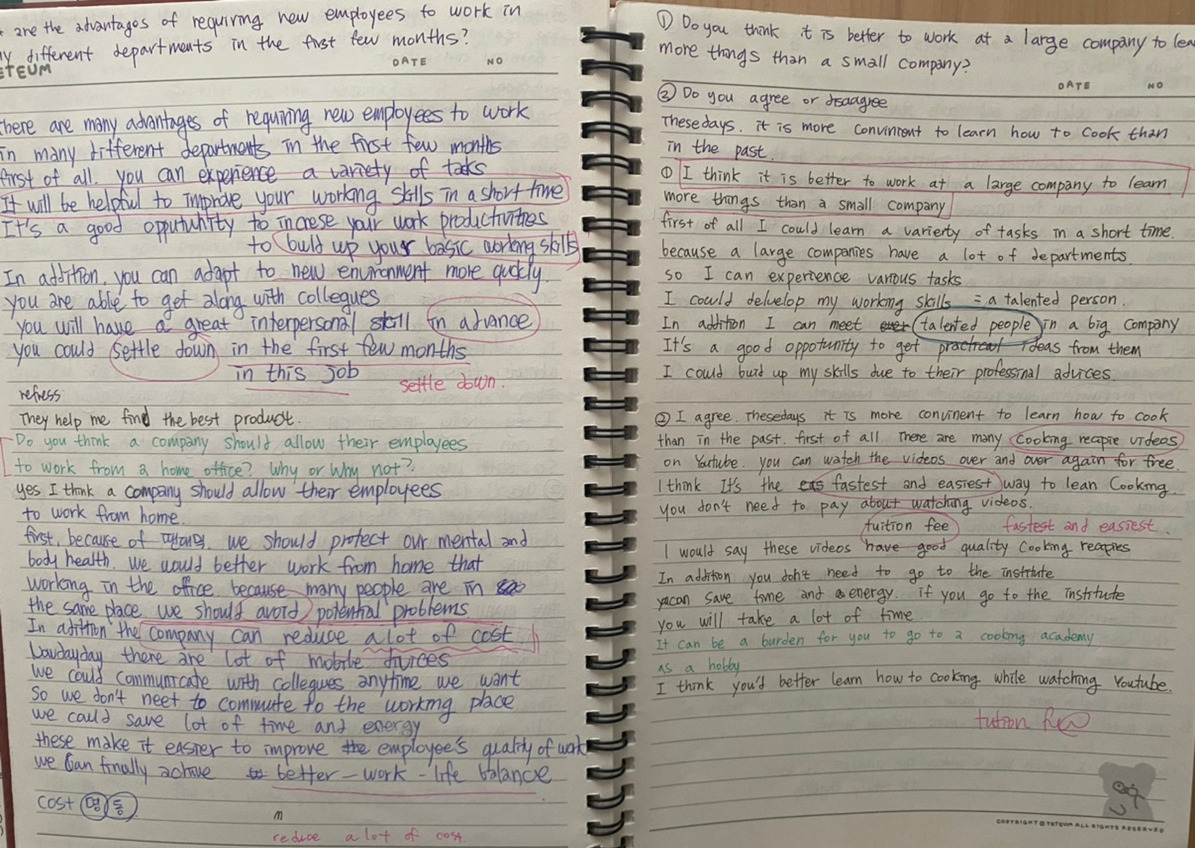 are the advantages of requiring new employees to work in
different departments in the first few months?
ETEUM
DATE NO
there are many advantages of requiring new employees to work
in many different departments in the first few months
first of all. you can experience a variety of tasks
It will be helpful to improve your working skills in a short time
It's a good oppurtunity to increse your work productivities
to build up your basic working skills
In addition, you can adapt to new environment more quickly.
you are able to get along with collegues
you will have a great interpersonal skill in advance
you could settle down in the first few months
in this job
settle down.
refress
They help me find the best product.
Do you think a company should allow their employees
to work from a home office? Why or Why not?
yes I think a company should allow their employees
to work from home.
first, because of we should protect our mental and
body health. we would better work from home that
working in the office because many people are in
the same place we should avoid potential problems
In adition the company can reduce a lot of cost.
there are lot of mobile
we could communicate with collegues anytime we want
So we don't neet to commute to the working place
we could save lot of time and energy
these make it easier to improve the employee's quality of work
we can finally achive better-work-life balance
cost 명 동
m
reduce a lot of cost.
① Do you think it is better to work at a large company to lea
more things than a small company?
DATE NO
② Do you agree or disagree
Thesedays. it is more convinient to learn how to cook than
in the past.
① I think it is better to work at a large company to learn
more things than a small company
first of all I could learn a varierty of tasks in a short time.
because a large companies have a lot of departments.
so I can experience various tasks
I could delvelop my working skills = a talented person.
In addition I can meet talented people in a big company
It's a good oppotunity to get practical ideas from them
I could build up my skills due to their professinal advices.
② I agree. Thesedays it is more convinent to learn how to cook
than in the past. first of all There are many cooking reapie videas
on Youtube. you can watch the videos over and over again for free.
I think It's the fastest and easiest way to lean Cooking.
you don't need to pay about watching videos.
tuition fee fastest and easiest.
I would say these videos have good quality Cooking reapies
In addition you don't need to go to the institute
save time and energy. if you go to the institute
you will take a lot of time
It can be a burden for you to go to a cooking academy
as a hobby
I think you'd better learn how to cooking while watching Youtube.
tution
COPYRIGHT © TETEUM ALL RIGHTS RESERVED